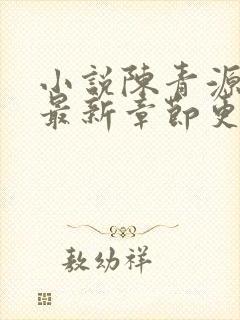 小説陳青源
最新章節更
敖幼祥